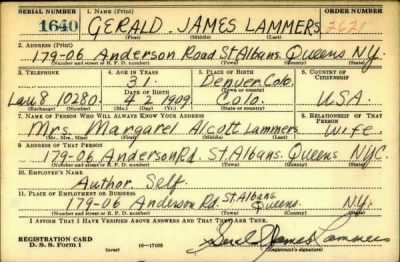 SERIAL NUMBER 1. NAME (Print) ORDER NUMBER
1640 GERALD JAMES LAMMERS 2621
(First) (Middle) (Last)
2. ADDRESS (Print)
179-06 Anderson Road St Albans, Queens N.Y.
(Number and street or R. F. D. number) (Town) (County) (State)
3. TELEPHONE 4. AGE IN YEARS 5. PLACE OF BIRTH 6. COUNTRY OF CITIZENSHIP
31 Denver, Colo.
DATE OF BIRTH (Town or county)
Lau 8 10280 4 2 1909 Colo. U.S.A.
(Exchange) (Number) (Mo.) (Day) (Yr.) (State or country)
7. NAME OF PERSON WHO WILL ALWAYS KNOW YOUR ADDRESS 8. RELATIONSHIP OF THAT PERSON
Mrs. Margaret Alcott Lammers Wife
(Mr., Mrs., Miss) (First) (Middle) (Last)
9. ADDRESS OF THAT PERSON
179-06 Anderson Rd. St Albans. Queens NYC.
(Number and street or R. F. D. number) (Town) (County) (State)
10. EMPLOYER'S NAME
Author Self.
11. PLACE OF EMPLOYMENT OR BUSINESS
179-06 Anderson Rd. St. Albans. Queens. N.Y.
(Number and street or R. F. D. number) (Town) (County) (State)
I AFFIRM THAT I HAVE VERIFIED ABOVE ANSWERS AND THAT THEY ARE TRUE.
REGISTRATION CARD
D. S. S. FORM 1 (over) 16-17105 Gerald James Lammers
(Registrant's signature)